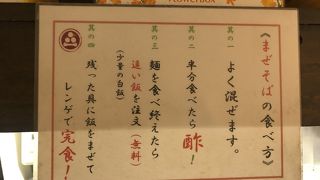 FLOWERBOX
《まぜそばの食べ方》
其の一
よく混ぜます。
其の二
半分食べたら酢！
其の三
麺を食べ終えたら
追い飯を注文（無料）
（少量の白飯）
其の四
残った具に飯をまぜて
レンゲで完食！